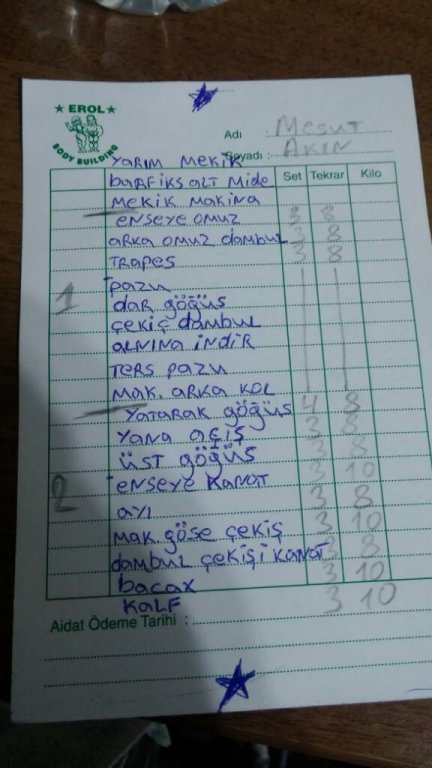 EROL
BODY BUILDING
Adı : Mesut
Soyadı : AKIN
YARIM MEKİK
bARFİKS ALT MİDE Set Tekrar Kilo
MEKİK MAKİNA
ENSEYE OMUZ 3 8
ARKA OMUZ dAMbUL 3 8
TRAPES 3 8
pAZU
1 dAR göğüs
çEKİÇ dAMbUL
ALNINA İNdİR
TERS PAZU
MAK. ARKA KOL
YATARAK göğüs 4 8
YANA AÇIŞ 3 8
ÜST göğüs 3 8
2 ENSEYE KANAT 3 10
AYI 3 8
MAK. göSE çEKİŞ 3 10
dAMbUL çEKİŞİ KANAT 3 8
bACAK 3 10
KALF 3 10
Aidat Ödeme Tarihi :